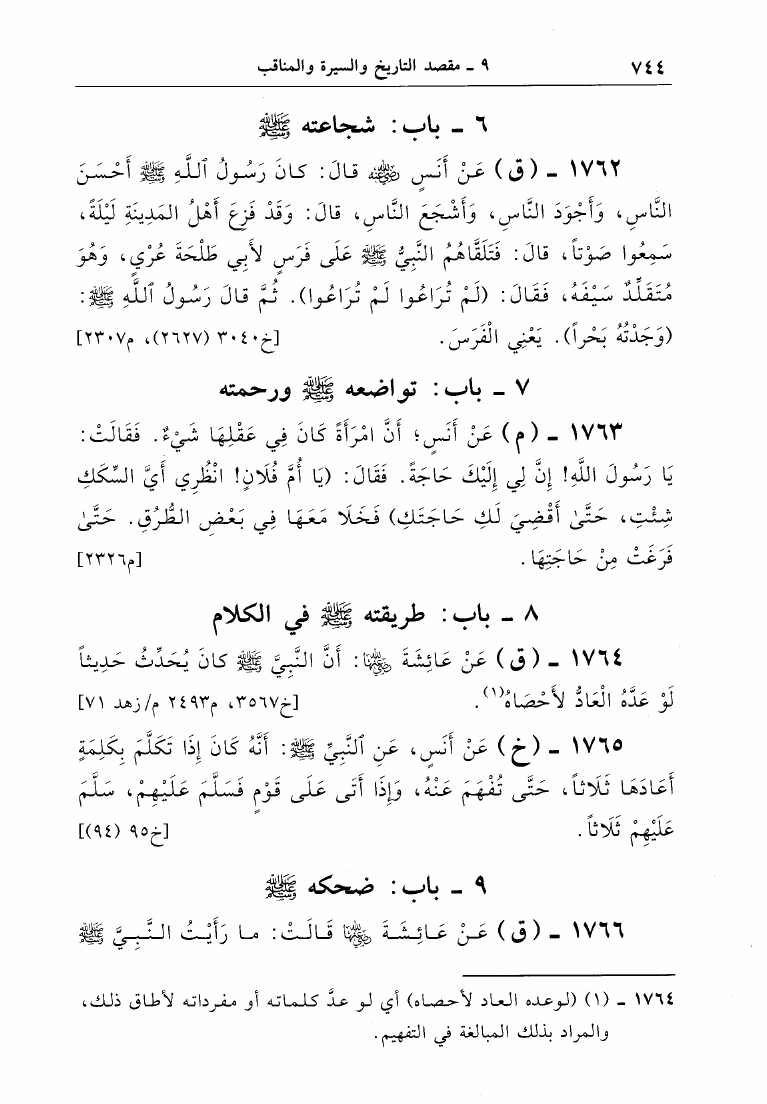 ٧٤٤ ٩ ـ مقصد التاريخ والسيرة والمناقب
٦ ـ باب: شجاعته ﷺ
١٧٦٢ ـ (ق) عَنْ أَنَسٍ رضي الله عنه قالَ: كانَ رَسُولُ ٱللَّهِ ﷺ أَحْسَنَ
النَّاسِ، وَأَجْوَدَ النَّاسِ، وَأَشْجَعَ النَّاسِ، قالَ: وَقَدْ فَزِعَ أَهْلُ المَدِينَةِ لَيْلَةً،
سَمِعُوا صَوْتاً، قالَ: فَتَلَقَّاهُمُ النَّبِيُّ ﷺ عَلَى فَرَسٍ لأَبِي طَلْحَةَ عُرْيٍ، وَهُوَ
مُتَقَلِّدٌ سَيْفَهُ، فَقَالَ: (لَمْ تُرَاعُوا لَمْ تُرَاعُوا). ثُمَّ قالَ رَسُولُ ٱللَّهِ ﷺ:
(وَجَدْتُهُ بَحْراً). يَعْنِي الْفَرَسَ. [خ٣٠٤٠ (٢٦٢٧)، م٢٣٠٧]
٧ ـ باب: تواضعه ﷺ ورحمته
١٧٦٣ ـ (م) عَنْ أَنَسٍ؛ أَنَّ امْرَأَةً كَانَ فِي عَقْلِهَا شَيْءٌ. فَقَالَتْ:
يَا رَسُولَ اللَّهِ! إِنَّ لِي إِلَيْكَ حَاجَةً. فَقَالَ: (يَا أُمَّ فُلَانٍ! انْظُرِي أَيَّ السِّكَكِ
شِئْتِ، حَتَّىٰ أَقْضِيَ لَكِ حَاجَتَكِ) فَخَلَا مَعَهَا فِي بَعْضِ الطُّرُقِ. حَتَّىٰ
فَرَغَتْ مِنْ حَاجَتِهَا. [م٢٣٢٦]
٨ ـ باب: طريقته ﷺ في الكلام
١٧٦٤ ـ (ق) عَنْ عَائِشَةَ رضي الله عنها: أَنَّ النَّبِيَّ ﷺ كانَ يُحَدِّثُ حَدِيثاً
لَوْ عَدَّهُ الْعَادُّ لأَحْصَاهُ(١). [خ٣٥٦٧، م٢٤٩٣ م/زهد ٧١]
١٧٦٥ ـ (خ) عَنْ أَنَسٍ، عَنِ ٱلنَّبِيِّ ﷺ: أَنَّهُ كَانَ إِذَا تَكَلَّمَ بِكَلِمَةٍ
أَعَادَهَا ثَلَاثاً، حَتَّى تُفْهَمَ عَنْهُ، وَإِذَا أَتَى عَلَى قَوْمٍ فَسَلَّمَ عَلَيْهِمْ، سَلَّمَ
عَلَيْهِمْ ثَلَاثاً. [خ٩٥ (٩٤)]
٩ ـ باب: ضحكه ﷺ
١٧٦٦ ـ (ق) عَنْ عَائِشَةَ رضي الله عنها قَالَتْ: ما رَأَيْتُ النَّبِيَّ ﷺ
١٧٦٤ ـ (١) (لوعده العاد لأحصاه) أي لو عدَّ كلماته أو مفرداته لأطاق ذلك،
والمراد بذلك المبالغة في التفهيم.